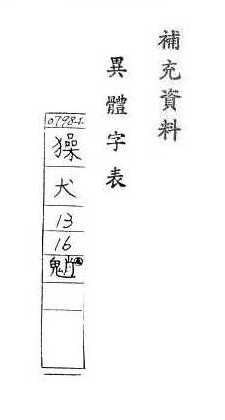 補充資料
異體字表
0798-1
獆
犬
13
16
魈